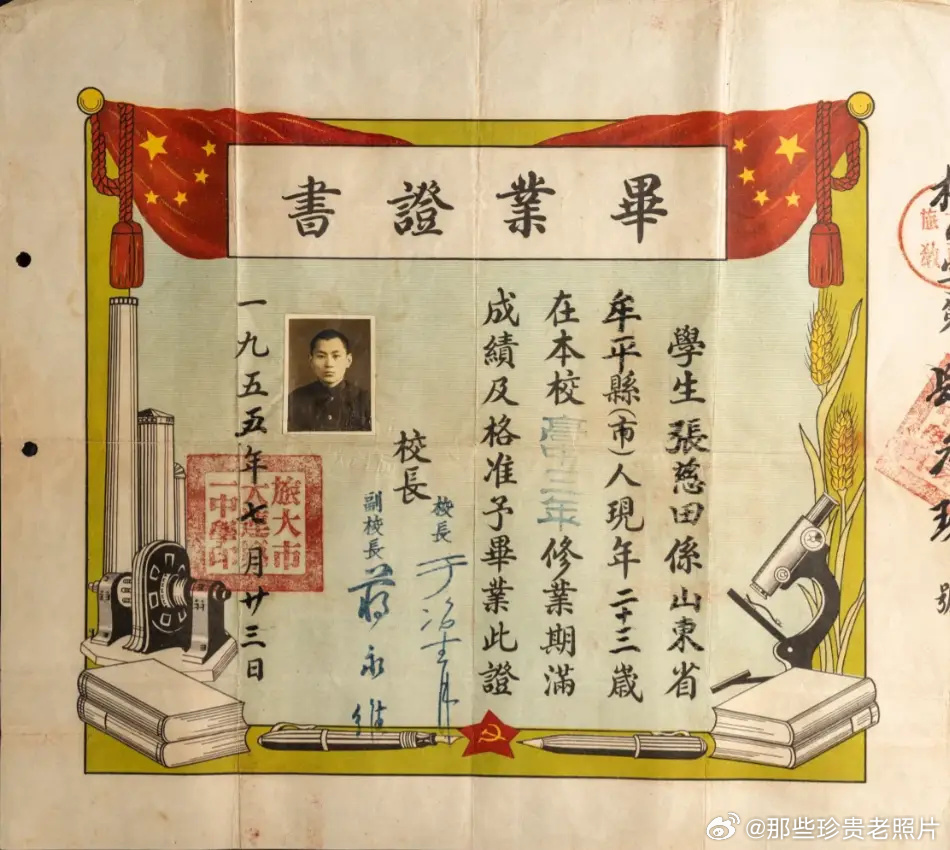 畢業證書
學生張慈田係山東省
牟平縣(市)人現年二十三歲
在本校高中三年修業期滿
成績及格准予畢業此證
校長
校長 于
副校長 蔣永維
一九五五年七月廿三日
旅大市
大連第
一中學印
字第
號
@那些珍贵老照片